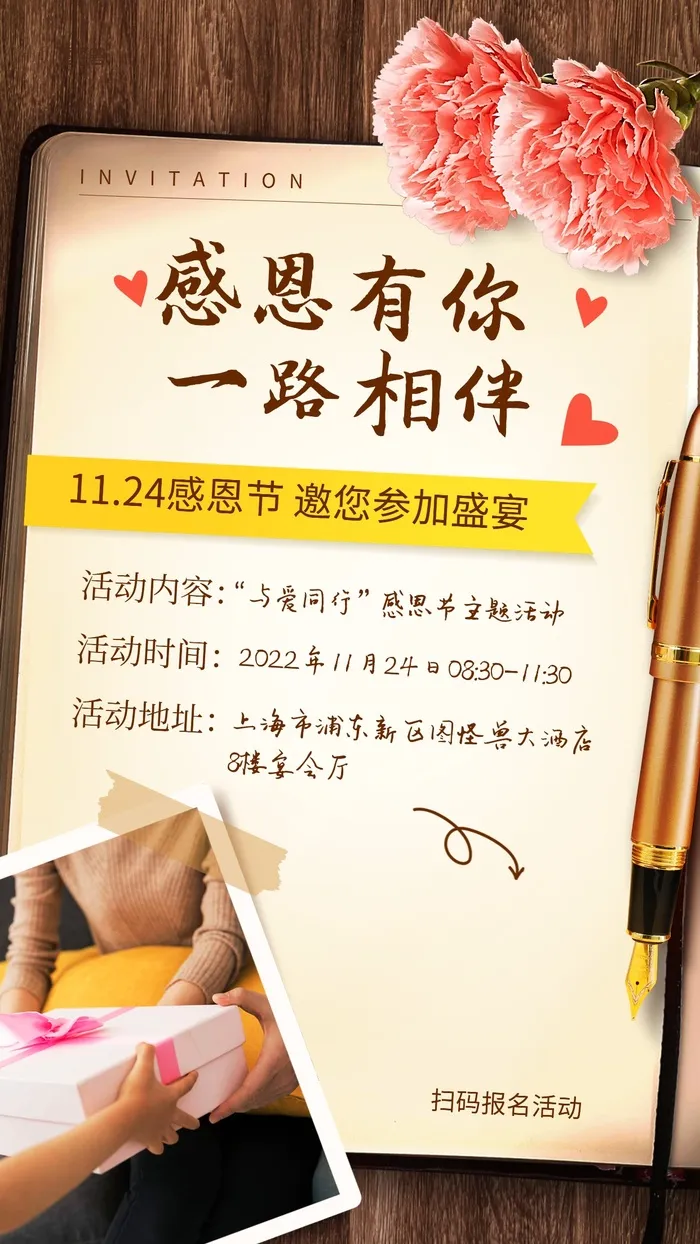 INVITATION
感恩有你
一路相伴
11.24感恩节 邀您参加盛宴
活动内容：“与爱同行”感恩节主题活动
活动时间：2022年11月24日08:30-11:30
活动地址：上海市浦东新区图怪兽大酒店
8楼宴会厅
扫码报名活动